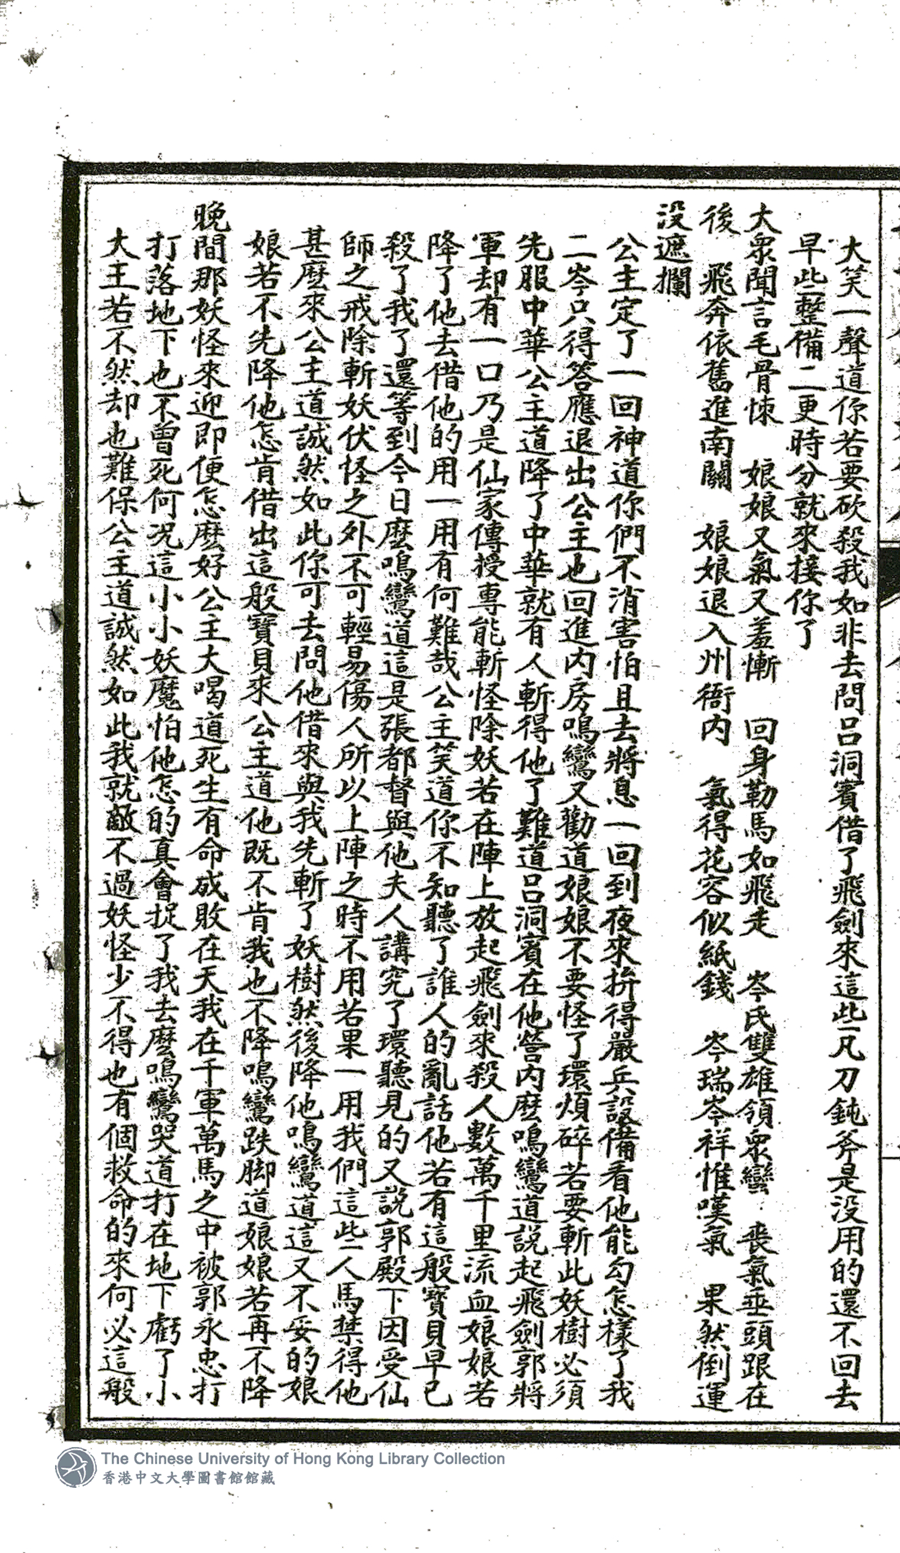 大笑一聲道你若要砍殺我如非去問呂洞賓借了飛劍來這些凡刀鈍斧是没用的還不回去
早些整備二更時分就來接你了
大衆聞言毛骨悚　娘娘又氣又羞慚　回身勒馬如飛走　岑氏雙雄領衆蠻　喪氣垂頭跟在
後　飛奔依舊進南關　娘娘退入州衙内　氣得花容似紙錢　岑瑞岑祥惟嘆氣　果然倒運
没遮攔
公主定了一回神道你們不消害怕且去將息一回到夜來拚得嚴兵設備看他能勾怎樣了我
二岑只得答應退出公主也回進内房鳴鸞又勸道娘娘不要怪了環煩碎若要斬此妖樹必須
先服中華公主道降了中華就有人斬得他了難道呂洞賓在他營内麽鳴鸞道説起飛劍郭將
軍却有一口乃是仙家傳授專能斬怪除妖若在陣上放起飛劍來殺人數萬千里流血娘娘若
降了他去借他的用一用有何難哉公主笑道你不知聽了誰人的亂話他若有這般寶貝早已
殺了我了還等到今日麽鳴鸞道這是張都督與他夫人講究了環聽見的又説郭殿下因受仙
師之戒除斬妖伏怪之外不可輕易傷人所以上陣之時不用若果一用我們這些人馬禁得他
甚麽來公主道誠然如此你可去問他借來與我先斬了妖樹然後降他鳴鸞道這又不妥的娘
娘若不先降他怎肯借出這般寶貝來公主道他既不肯我也不降鳴鸞跌脚道娘娘若再不降
晚間那妖怪來迎即便怎麽好公主大喝道死生有命成敗在天我在千軍萬馬之中被郭永忠打
打落地下也不曾死何況這小小妖魔怕他怎的真會捉了我去麽鳴鸞哭道打在地下虧了小
大王若不然却也難保公主道誠然如此我就敵不過妖怪少不得也有個救命的來何必這般
The Chinese University of Hong Kong Library Collection
香港中文大學圖書館館藏